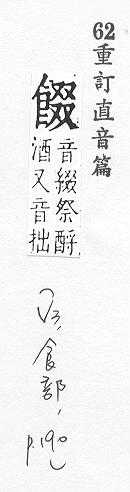 62重訂直音篇
餟
音綴祭酹
酒又音拙
V3,食部,
p.190